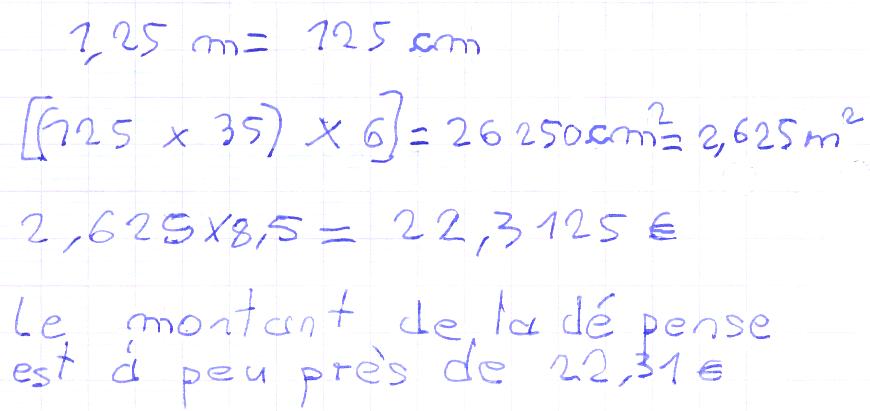 1,25 m = 125 cm
[(125 × 35) × 6] = 26 250 cm² = 2,625 m²
2,625 × 8,5 = 22,3125 €
Le montant de la dépense
est à peu près de 22,31 €